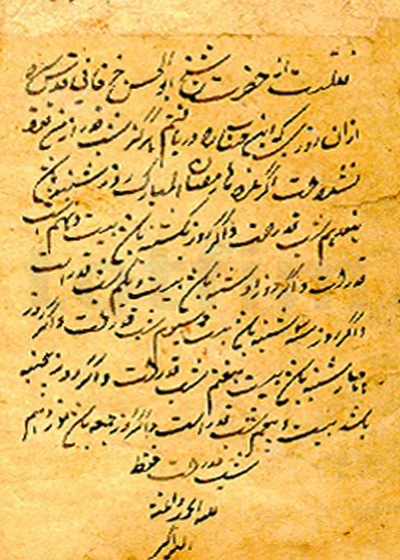 نقلست از حضرت شیخ ابوالحسن خرقانی قدس سره
ازان روزی که این را دریافتم هرگز شب قدر از من فوت
نشده است اگر غره ماه رمضان المبارک روز شنبه باشد
شب قدر است و اگر روز یکشنبه باشد بیست و نهم شب
قدر است و اگر روز دوشنبه باشد بیست و یکم شب قدر است
و اگر روز سه شنبه باشد بیست و سیوم شب قدر است و اگر روز
چهارشنبه باشد بیست هفتم شب قدر است و اگر روز پنجشنبه
باشد بیست و پنجم شب قدر است و اگر روز جمعه باشد نوزدهم
شب قدر است فقط
لله الحمد والمنة
الله اکبر